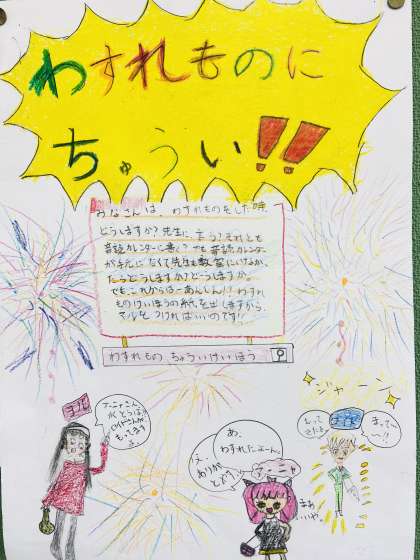 わすれものに
ちゅうい!!
みなさんは、わすれものをした時、
どうしますか?先生に言う?それとも
音読カレンダーに書く?でも音読カレンダー
が手元になくて先生も教室にいなか
ったらどうしますか?どーうしますか。
でも、これからはーあんしん!!わすれ
ものけいほうの紙を出しますから、
マルをつければいいのです!!
わすれもの ちゅういけいほう
ジャーン
ヨル
アーニャさん
ロイドさんが
もってます
よ。
あ、
わすれたよーん。
え、
ありが
とどう
アーニャ
まあ
いいや。
もって
きたよ
まって~